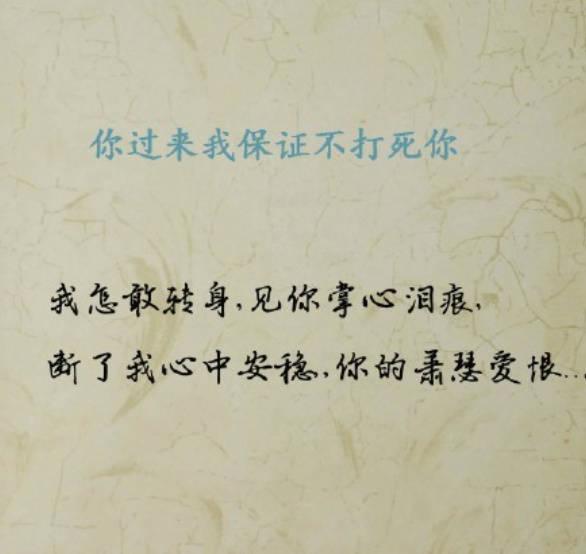 你过来我保证不打死你
我怎敢转身,见你掌心泪痕,
断了我心中安稳,你的萧瑟爱恨...